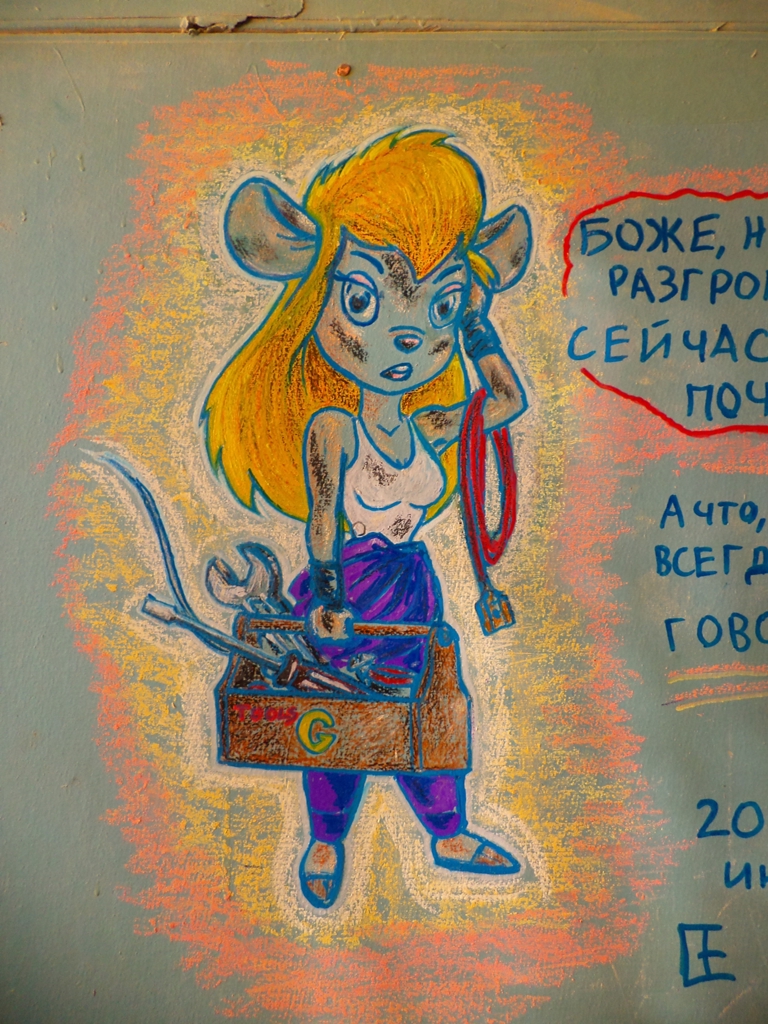 БОЖЕ, Н
РАЗГРО
СЕЙЧАС
ПОЧ
А ЧТО,
ВСЕГД
ГОВО
TOOLS
G
20
ИН